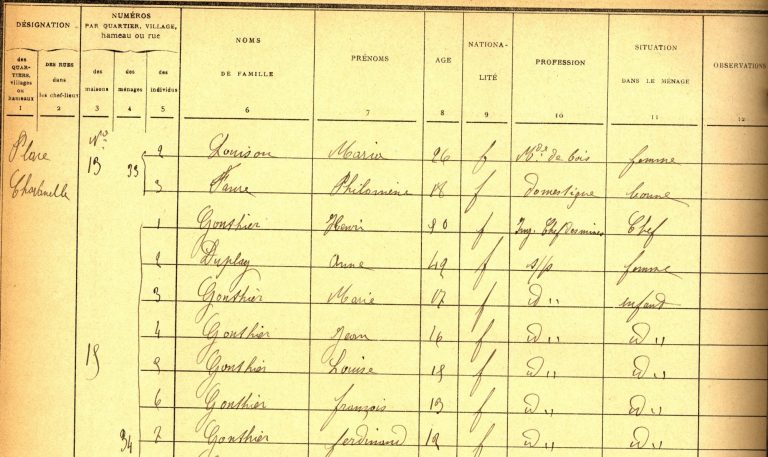 DÉSIGNATION
NUMÉROS
PAR QUARTIER, VILLAGE,
hameau ou rue
NOMS
DE FAMILLE
PRÉNOMS
AGE
NATIONA-
LITÉ
PROFESSION
SITUATION
DANS LE MÉNAGE
OBSERVATIONS
des
QUAR-
TIERS,
villages
ou
hameaux
DES RUES
dans
les chef-lieux
des
maisons
des
ménages
des
individus
1 2 3 4 5 6 7 8 9 10 11 12
Place N° 13 33 2 Louison Maria 26 f Mde de bois femme
3 Faure Philomène 18 f domestique bonne
1 Gonthier Henri 50 f Ing. Chef des mines Chef
2 Duplay Anne 42 f s/p femme
3 Gonthier Marie 17 f id " enfant
4 Gonthier Jean 16 f id " id "
15 5 Gonthier Louise 15 f id " id "
6 Gonthier françois 13 f id " id "
34 7 Gonthier ferdinand 12 f id " id "